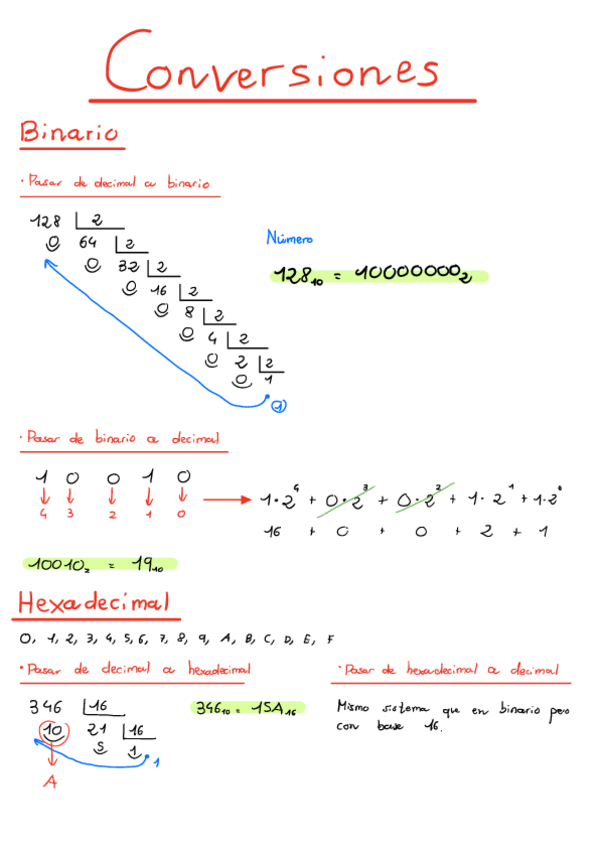 Conversiones
Binario
· Pasar de decimal a binario
128 2
0 64 2
0 32 2
0 16 2
0 8 2
0 4 2
0 2 2
0 1
1
Número
128₁₀ = 10000000₂
· Pasar de binario a decimal
1 0 0 1 0
4 3 2 1 0
1·2⁴ + 0·2³ + 0·2² + 1·2¹ + 1·2⁰
16 + 0 + 0 + 2 + 1
10010₂ = 19₁₀
Hexadecimal
0, 1, 2, 3, 4, 5, 6, 7, 8, 9, A, B, C, D, E, F
· Pasar de decimal a hexadecimal
346 16
10 21 16
5 1
1
A
346₁₀ = 15A₁₆
· Pasar de hexadecimal a decimal
Mismo sistema que en binario pero
con base 16.